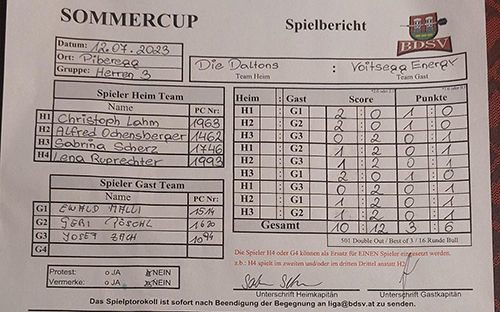 SOMMERCUP
Spielbericht
BDSV
Datum: 12.07.2023
Ort: Piberegg
Gruppe: Herren 3
Die Daltons : Voitsegg Energy
Team Heim Team Gast
Spieler Heim Team
Name PC Nr:
H1 Christoph Lahm 1963
H2 Alfred Ochensberger 1462
H3 Sabrina Scherz 1746
H4 Lena Ruprechter 1993
Spieler Gast Team
Name PC Nr:
G1 EWALD MALLI 1514
G2 GERI PÖSCHL 1620
G3 JOSEF ZACH 1094
G4
Heim : Gast Score Punkte
H1 : G1 2 : 0 1 : 0
H2 : G2 2 : 0 1 : 0
H3 : G3 0 : 2 0 : 1
H1 : G2 1 : 2 0 : 1
H2 : G3 1 : 2 0 : 1
H3 : G1 2 : 0 1 : 0
H1 : G3 0 : 2 0 : 1
H3 : G2 1 : 2 0 : 1
H2 : G1 1 : 2 0 : 1
Gesamt 10 : 12 3 : 6
501 Double Out / Best of 3 / 16 Runde Bull
Die Spieler H4 oder G4 können als Ersatz für EINEN Spieler eingesetzt werden.
z.b.: H4 spielt im zweiten und/oder im dritten Drittel anstatt H2
Protest: o JA NEIN
Vermerke: o JA NEIN
Unterschrift Heimkapitän Unterschrift Gastkapitän
Das Spielprotokoll ist sofort nach Beendigung der Begegnung an liga@bdsv.at zu senden.